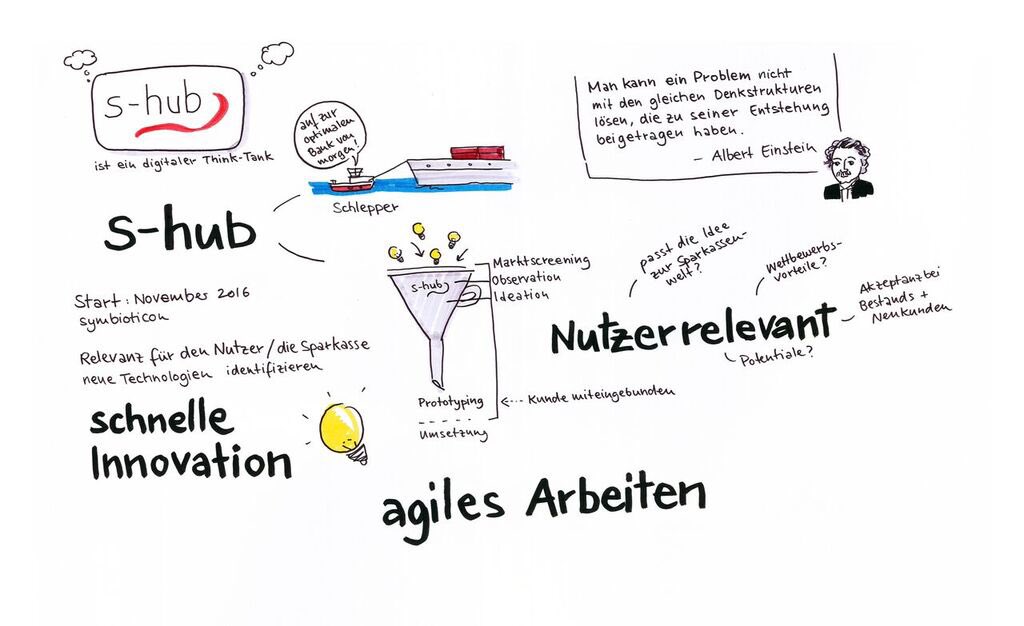 s-hub
ist ein digitaler Think-Tank
auf zur
optimalen
Bank von
morgen!
Schlepper
Man kann ein Problem nicht
mit den gleichen Denkstrukturen
lösen, die zu seiner Entstehung
beigetragen haben.
– Albert Einstein
s-hub
Start: November 2016
symbioticon
Relevanz für den Nutzer/die Sparkasse
neue Technologien identifizieren
schnelle
Innovation
s-hub
Marktscreening
Observation
Ideation
Prototyping
Kunde miteingebunden
Umsetzung
passt die Idee
zur Sparkassen-
welt?
Wettbewerbs-
vorteile?
Akzeptanz bei
Bestands +
Neukunden
Nutzerrelevant
Potentiale?
agiles Arbeiten